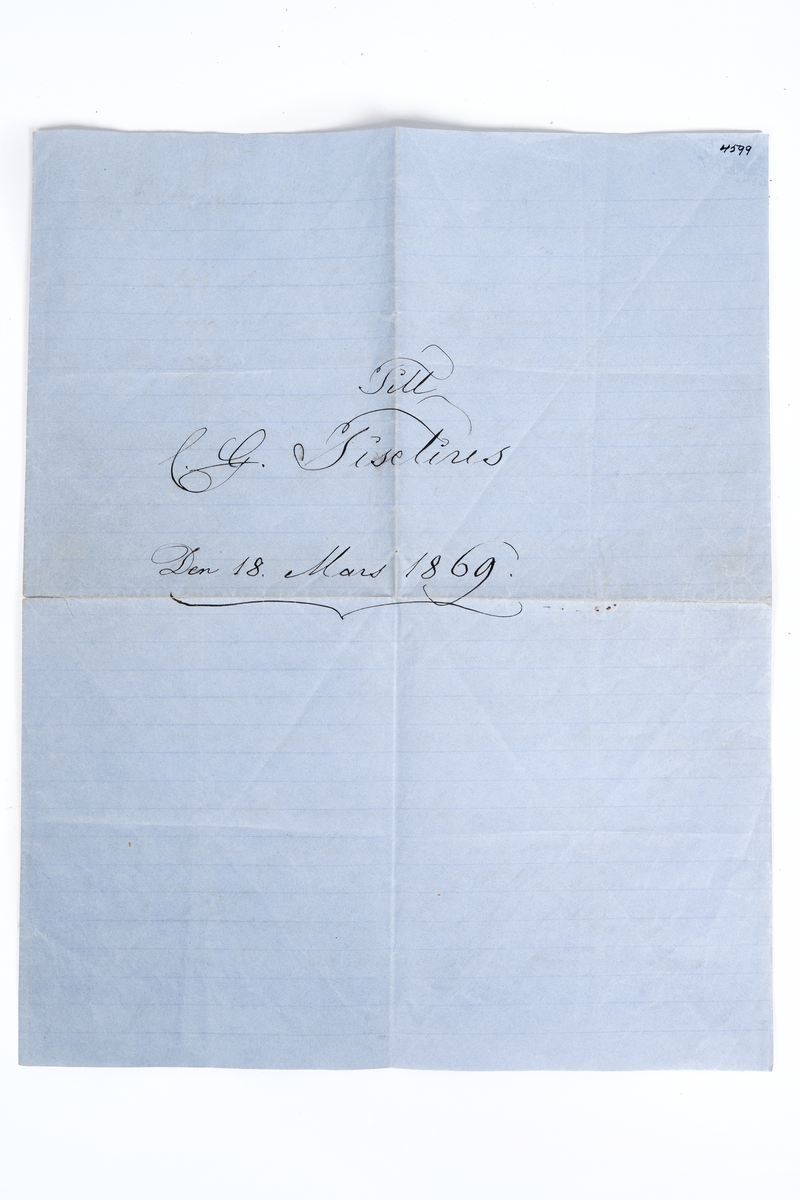 4599
Till
C. G. Tiselius
Den 18. Mars 1869.